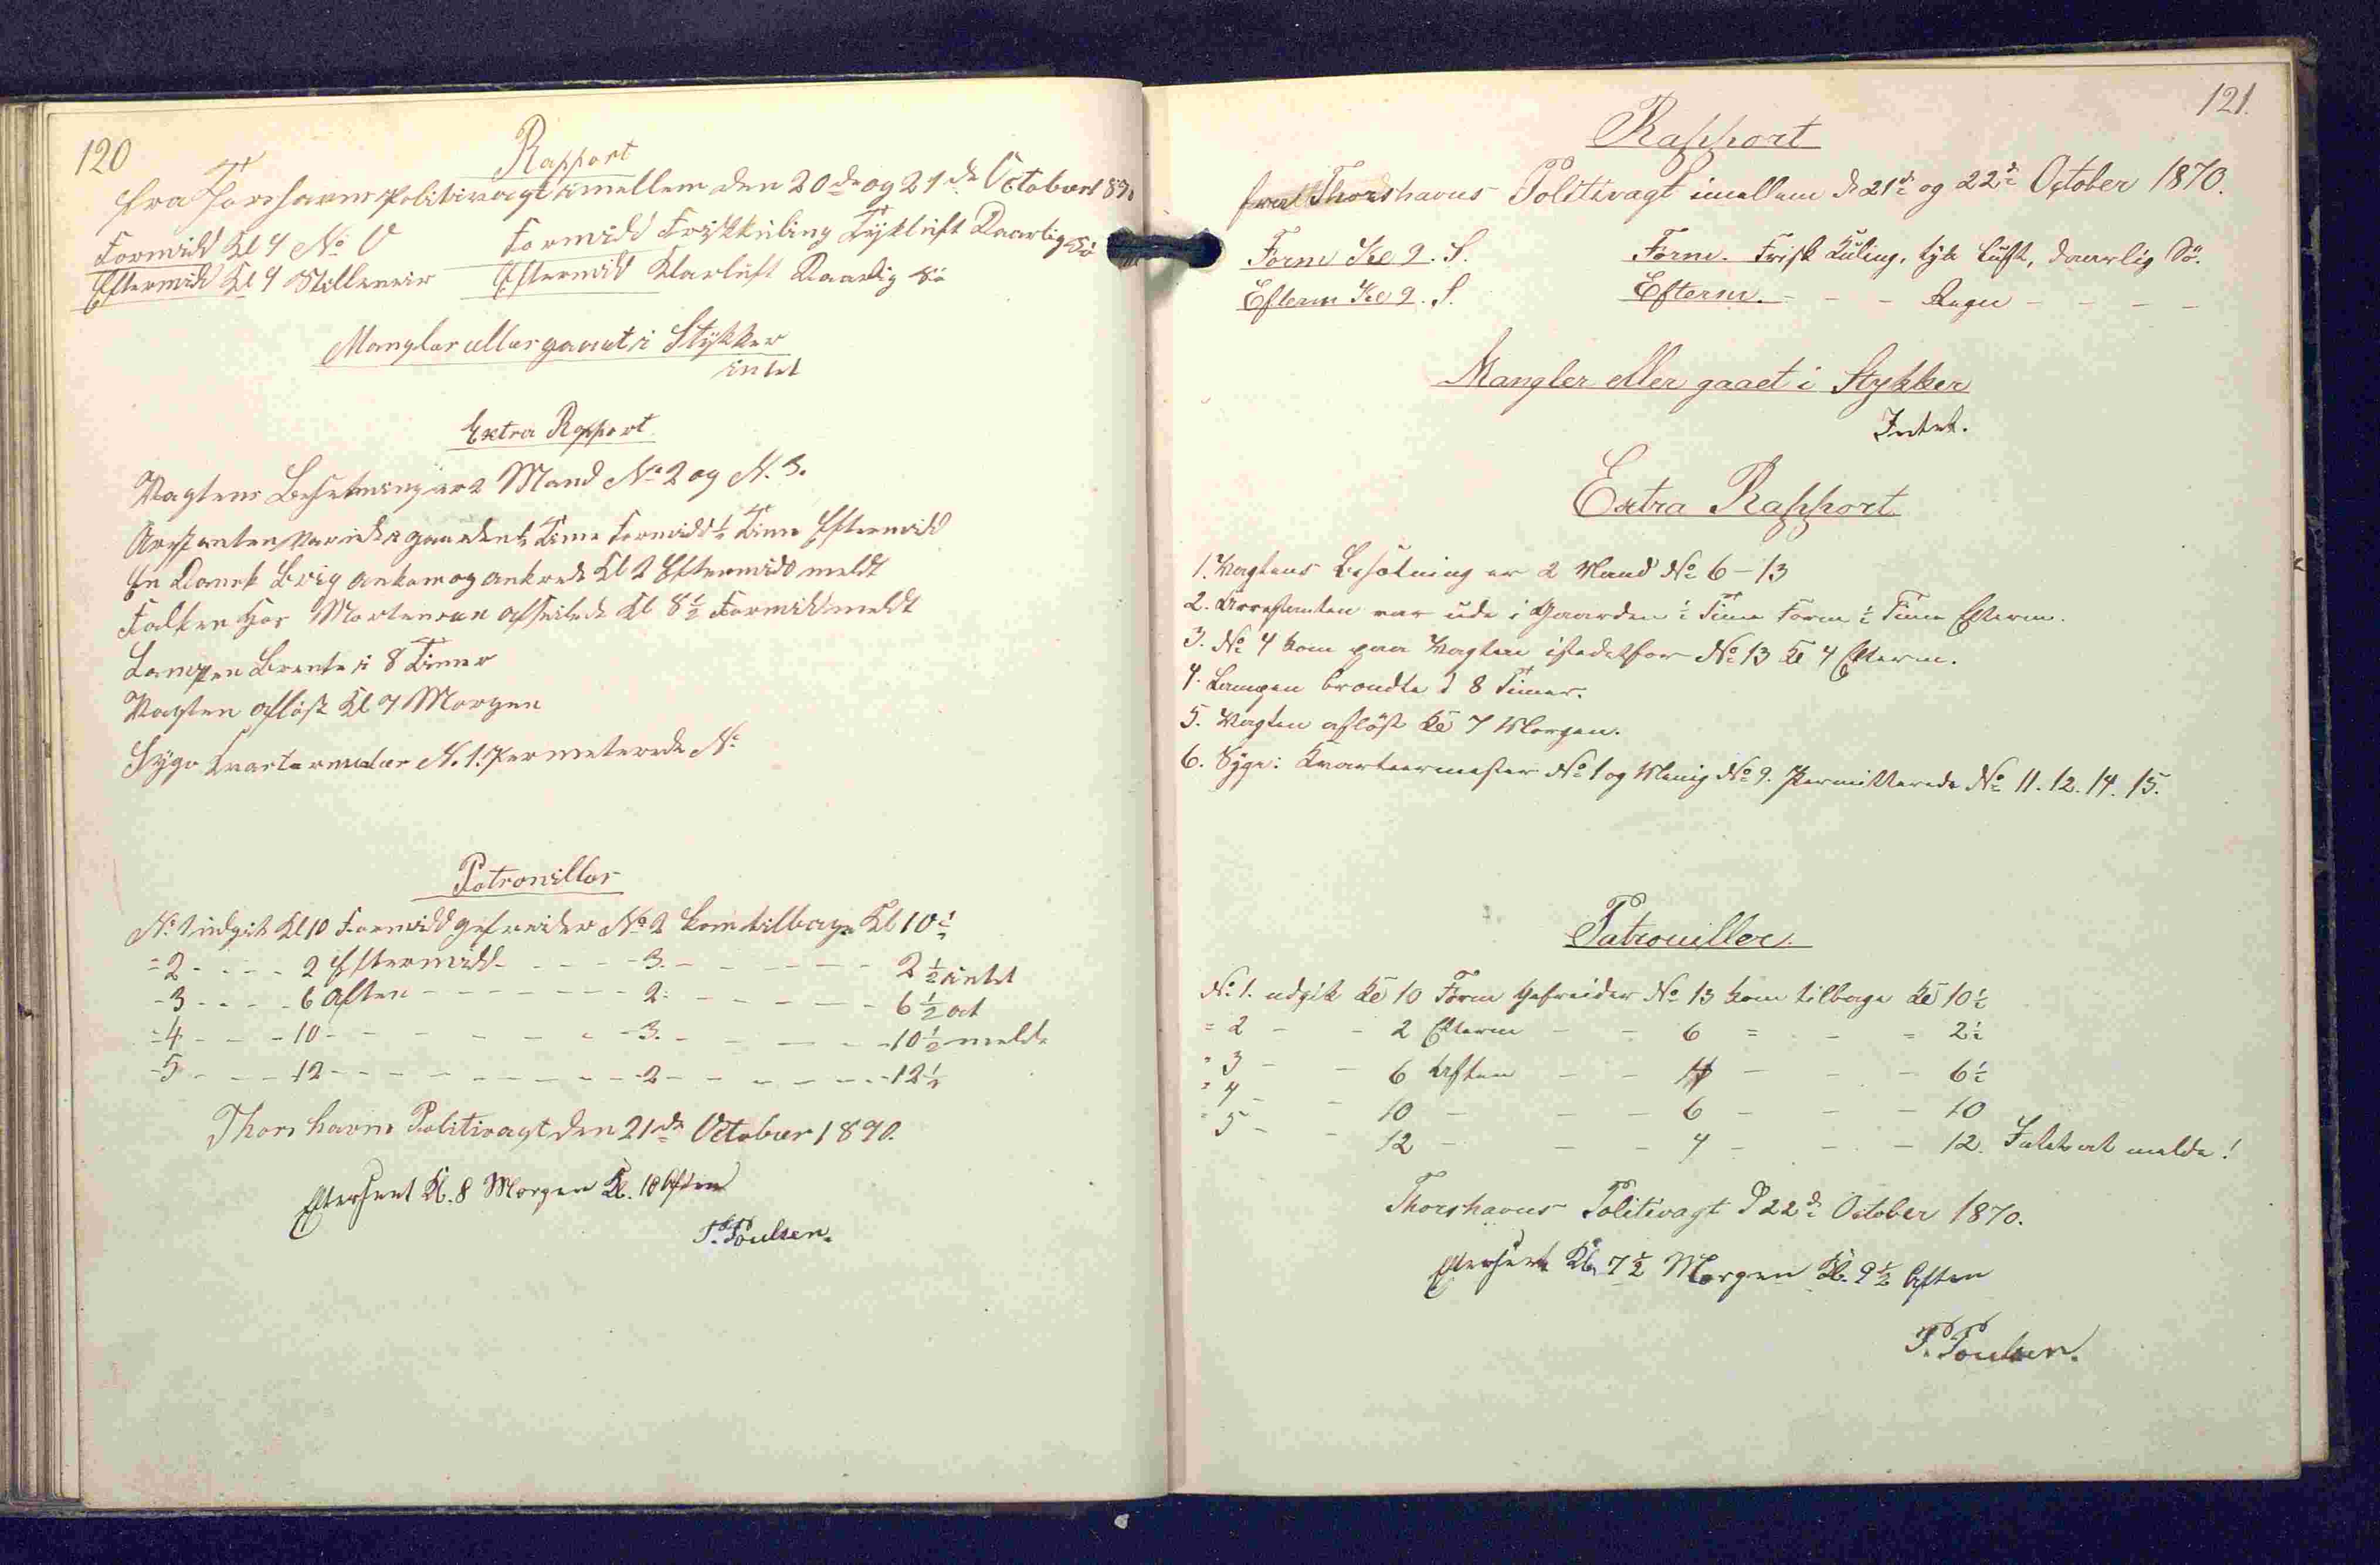 120
Rapport
fra Torshavns Politivagt imellem den 20de og 21de October 1870
Formidd Kl 9 No V Formidd Friskkuling Tykluft Daarlig Sö
Eftermidd Kl 9 Stilleveir Eftermidd Klarluft Daarlig Sö
Mangler eller gaaet i Stÿkker
intet
Extra Rapport
Vagtens Besetning er 2 Mand No 2 og N. 3.
Arestanten var ude i gaarden ½ Time Formidd ½ Time Eftermidd
En Dansk Brig ankom og ankrede Kl 2 Eftermidd meldt
Falken Hos Mortensen afseilede Kl 8½ Formidd meldt
Lampen Brente i 8 Timer
Vagten aflöst Kl 7 Morgen
Syge N. 1. Permeterede No
Patrouiller
No 1 udgik Kl 10 Formidd gefreider No 2 kom tilbage Kl 10½
=2 - - - - 2 Eftermidd - - - - 3. - - - - - 2½ intet
-3 - - - - 6 Aften - - - - - - - 2. - - - - - 6½ at
=4 - - - 10 - - - - - - 3. - - - - - 10½ melde
-5 - - - 12 - - - - - - - - 2 - - - - - - 12½
Thorshavns Politivagt den 21de October 1870.
Efterseet Kl. 8 Morgen Kl. 10 Aften
P. Poulsen.
121.
Rapport
fra Thorshavns Politivagt imellem d 21de og 22de October 1870.
Form Kl 9. S. Form. Frisk Kuling, tyk Luft, daarlig Sö.
Efterm Kl 9. S. Efterm. - - - Regn - - - -
Mangler eller gaaet i Stykker
Intet.
Extra Rapport
1. Vagtens Besætning er 2 Mand No 6 - 13
2. Arrestanten var ude i Gaarden ½ Time Form ½ Time Efterm.
3. No 4 kom paa Vagten istedetfor No 13 Kl 4 Efterm.
4. Lampen brændte i 8 Timer.
5. Vagten aflöst Kl 7 Morgen.
6. Syge: Kvarteermester No 1 og Menig No 9. Permitterede No 11. 12. 14. 15.
Patrouiller.
No. 1. udgik Kl 10 Form Gefreider No 13 kom tilbage Kl 10½
= 2 - - 2 Efterm - - 6 = - = 2½
" 3 - - 6 Aften - - 4 - - - 6½
" 4 - - 10 - - - 6 - - - 10
" 5 - - 12 - - - 4 - - - 12. Intet at melde!
Thorshavns Politivagt d 22de October 1870.
Efterseet Kl. 7½ Morgen Kl. 9½ Aften
P. Poulsen.